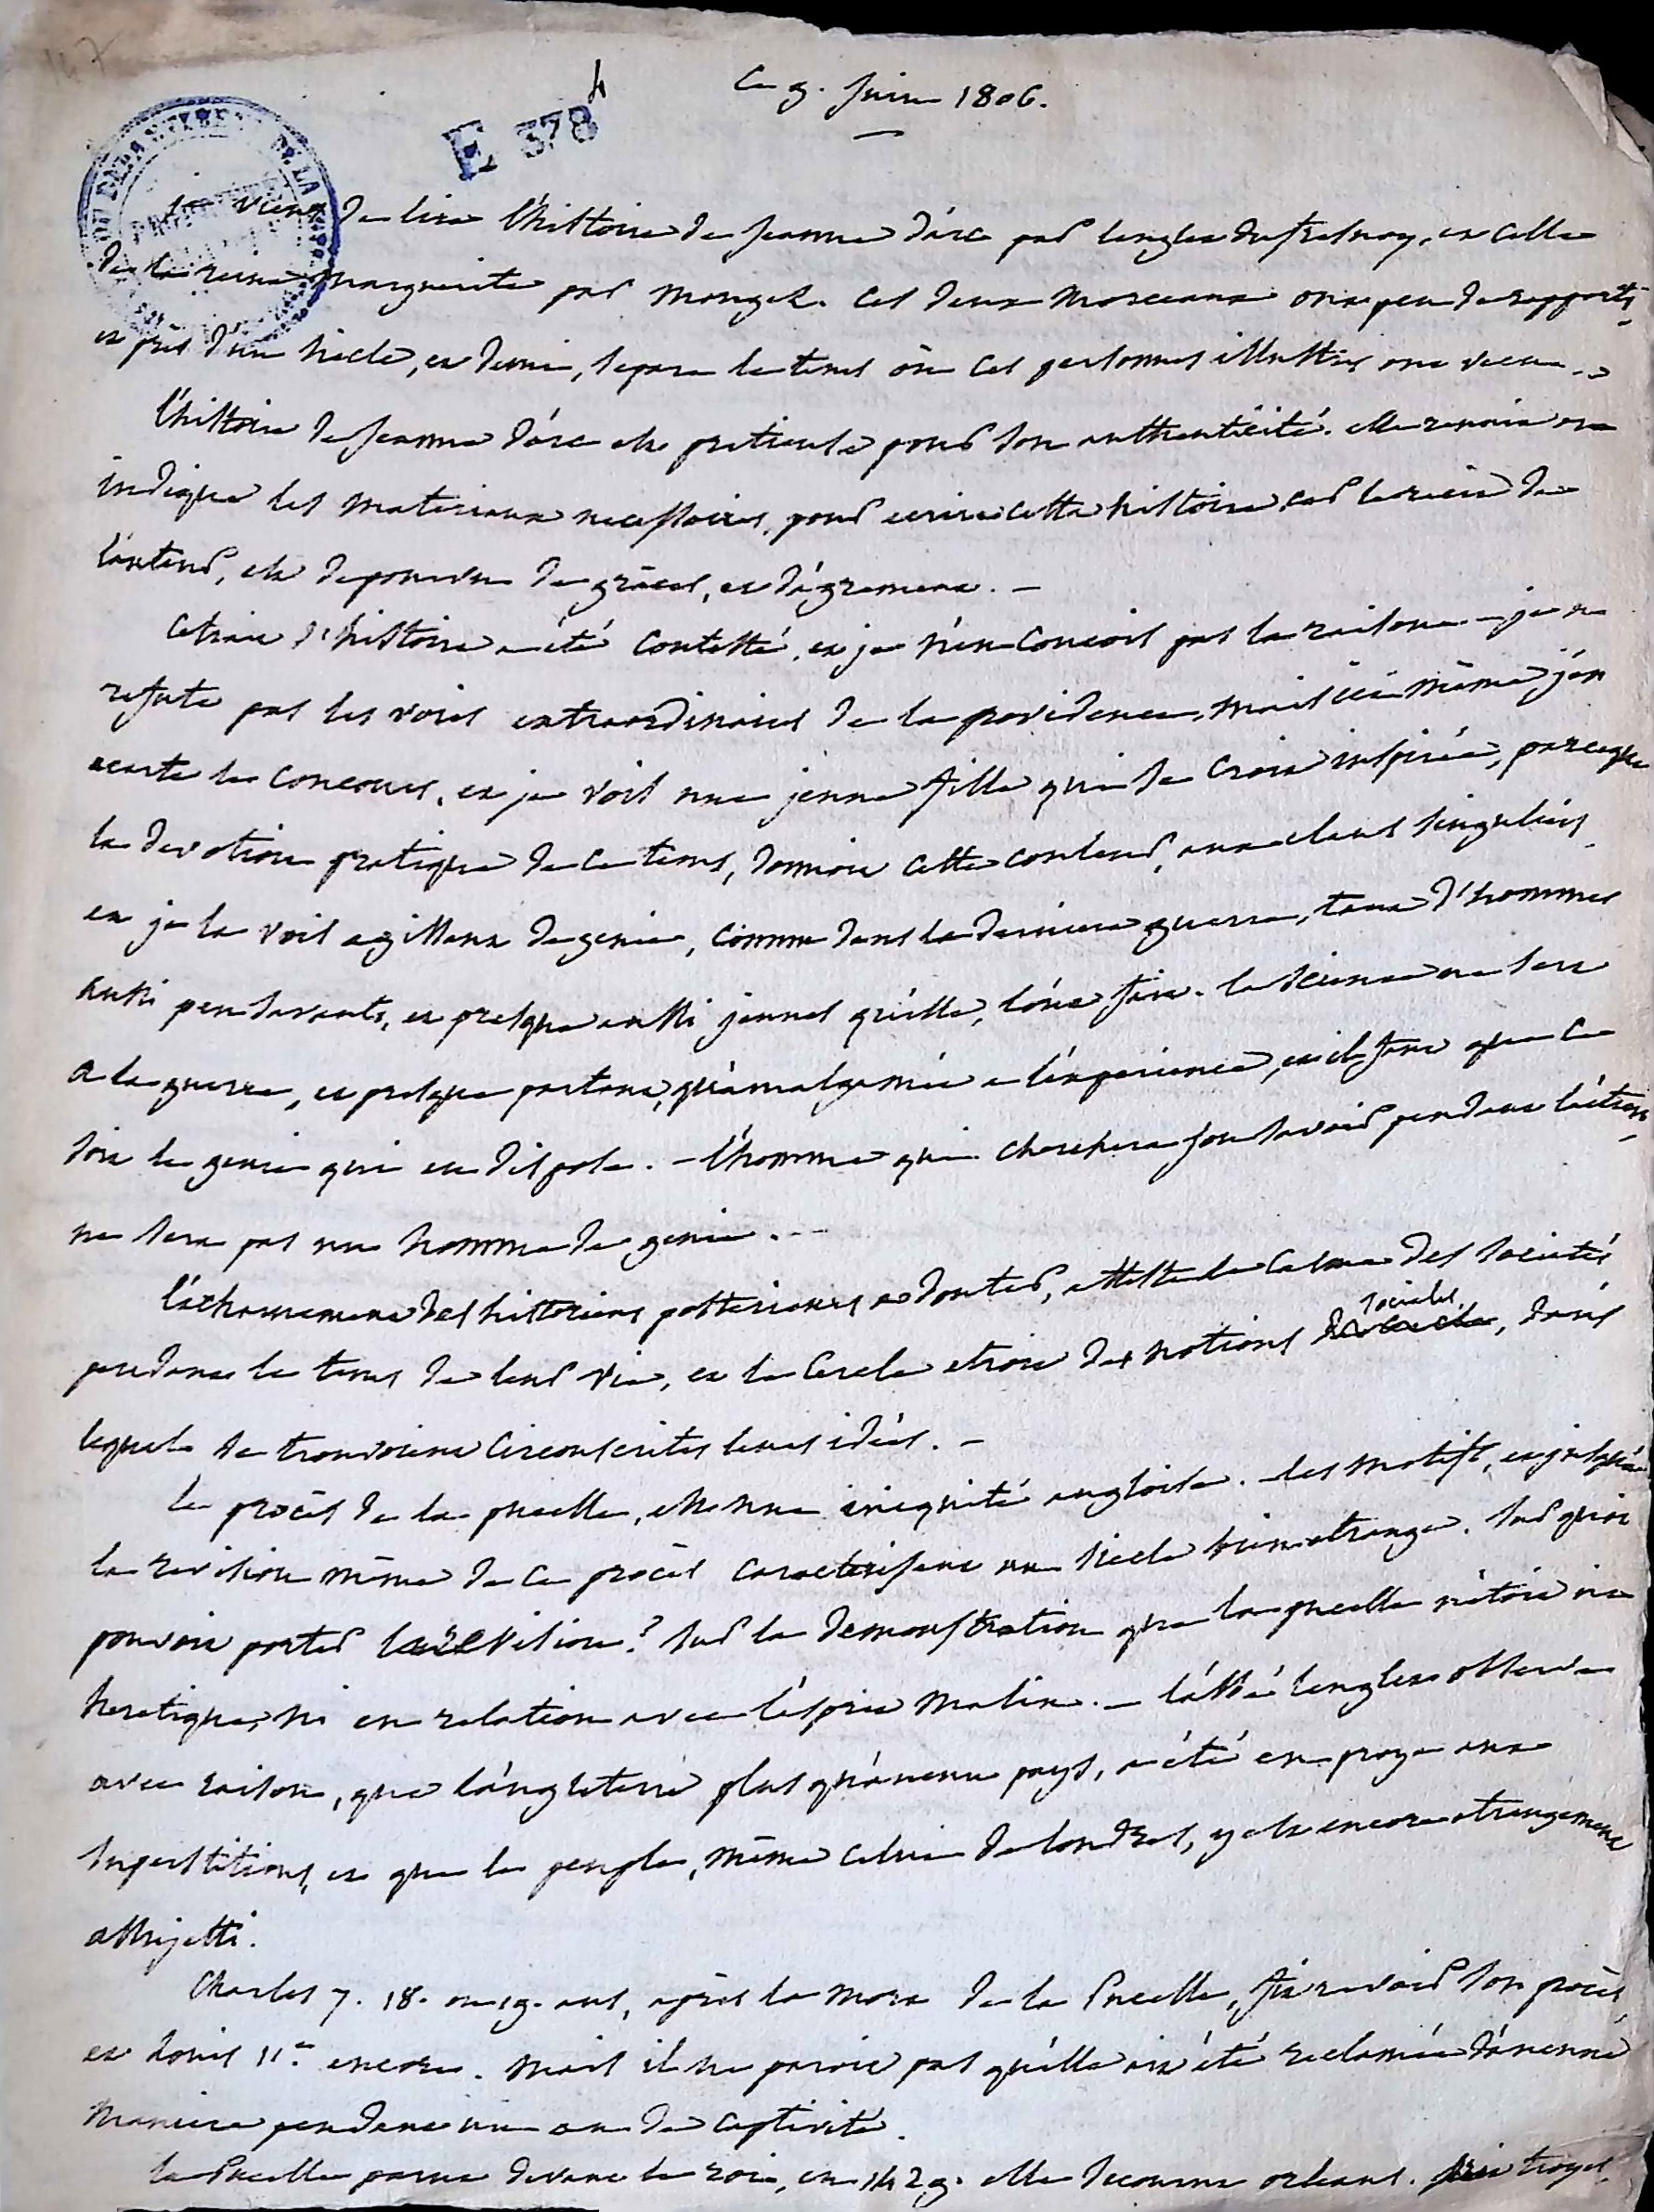 147
E 378
4
Ce 9. juin 1806.
DU DEPARTEMENT DE LA
je viens de lire l'histoire de jeanne d'arc par lenglet dufresnoy, et celle
de la reine marguerite par mongez. Ces deux morceaux ont peu de rapports,
et près d'un siècle, et demi, separe le tems où ces personnes illustres ont vecu. -
l'histoire de jeanne d'arc est pretieuse pour son authenticité. elle renvoie
indique les materiaux necessaires, pour ecrire cette histoire, car le recit de
l'auteur, est depourvu de grâces, et d'agrement. -
Ce trait d'histoire a été contesté, et je n'en concois pas la raison. - je ne
refute pas les voies extraordinaires de la providence, mais ici même j'en
ecarte le concours, et je vois une jeune fille qui se croit inspirée, parceque
la devotion pratique de ce tems, donnoit cette couleur, aux elans singuliers,
et je la vois agissant de genie, comme dans la derniere guerre, tant d'hommes
aussi peu savants, et presque aussi jeunes qu'elle, l'ont fait. la science ne sert
a la guerre, et presque partout, qu'amalgamée a l'experience, et il faut que ce
soit le genie qui en dispose. - l'homme qui cherchera son savoir pendant l'action,
ne sera pas un homme de genie. - -
l'acharnement des historiens posterieurs a douter, atteste le calme des societés
pendant le tems de leur vie, et le cercle etroit des notions sociales, dans
lequel se trouvoient circonscrites leurs idées. -
le procès de la pucelle, est une iniquité angloise. - les motifs, et jusqu'à
la revision même de ce procès caracterisent un siecle bien etrange. sur quoi
pouvoit porter la revision? sur la demonstration que la pucelle n'étoit ni
heretique, ni en relation avec l'esprit malin. - l'abbé lenglet observe
avec raison, que l'angleterre plus qu'aucun pays, a été en proye aux
superstitions, et que le peuple, même celui de londres, y est encore etrangement
assujetti.
Charles 7. 18. ou 19. ans, après la mort de la Pucelle, fit revoir son procès,
et Louis 11. encore. mais il ne paroit pas qu'elle ait été reclamée d'aucune
maniere pendant un an de captivité.
la Pucelle parut devant le roi, en 1429. elle secourut orleans. prit troyes,